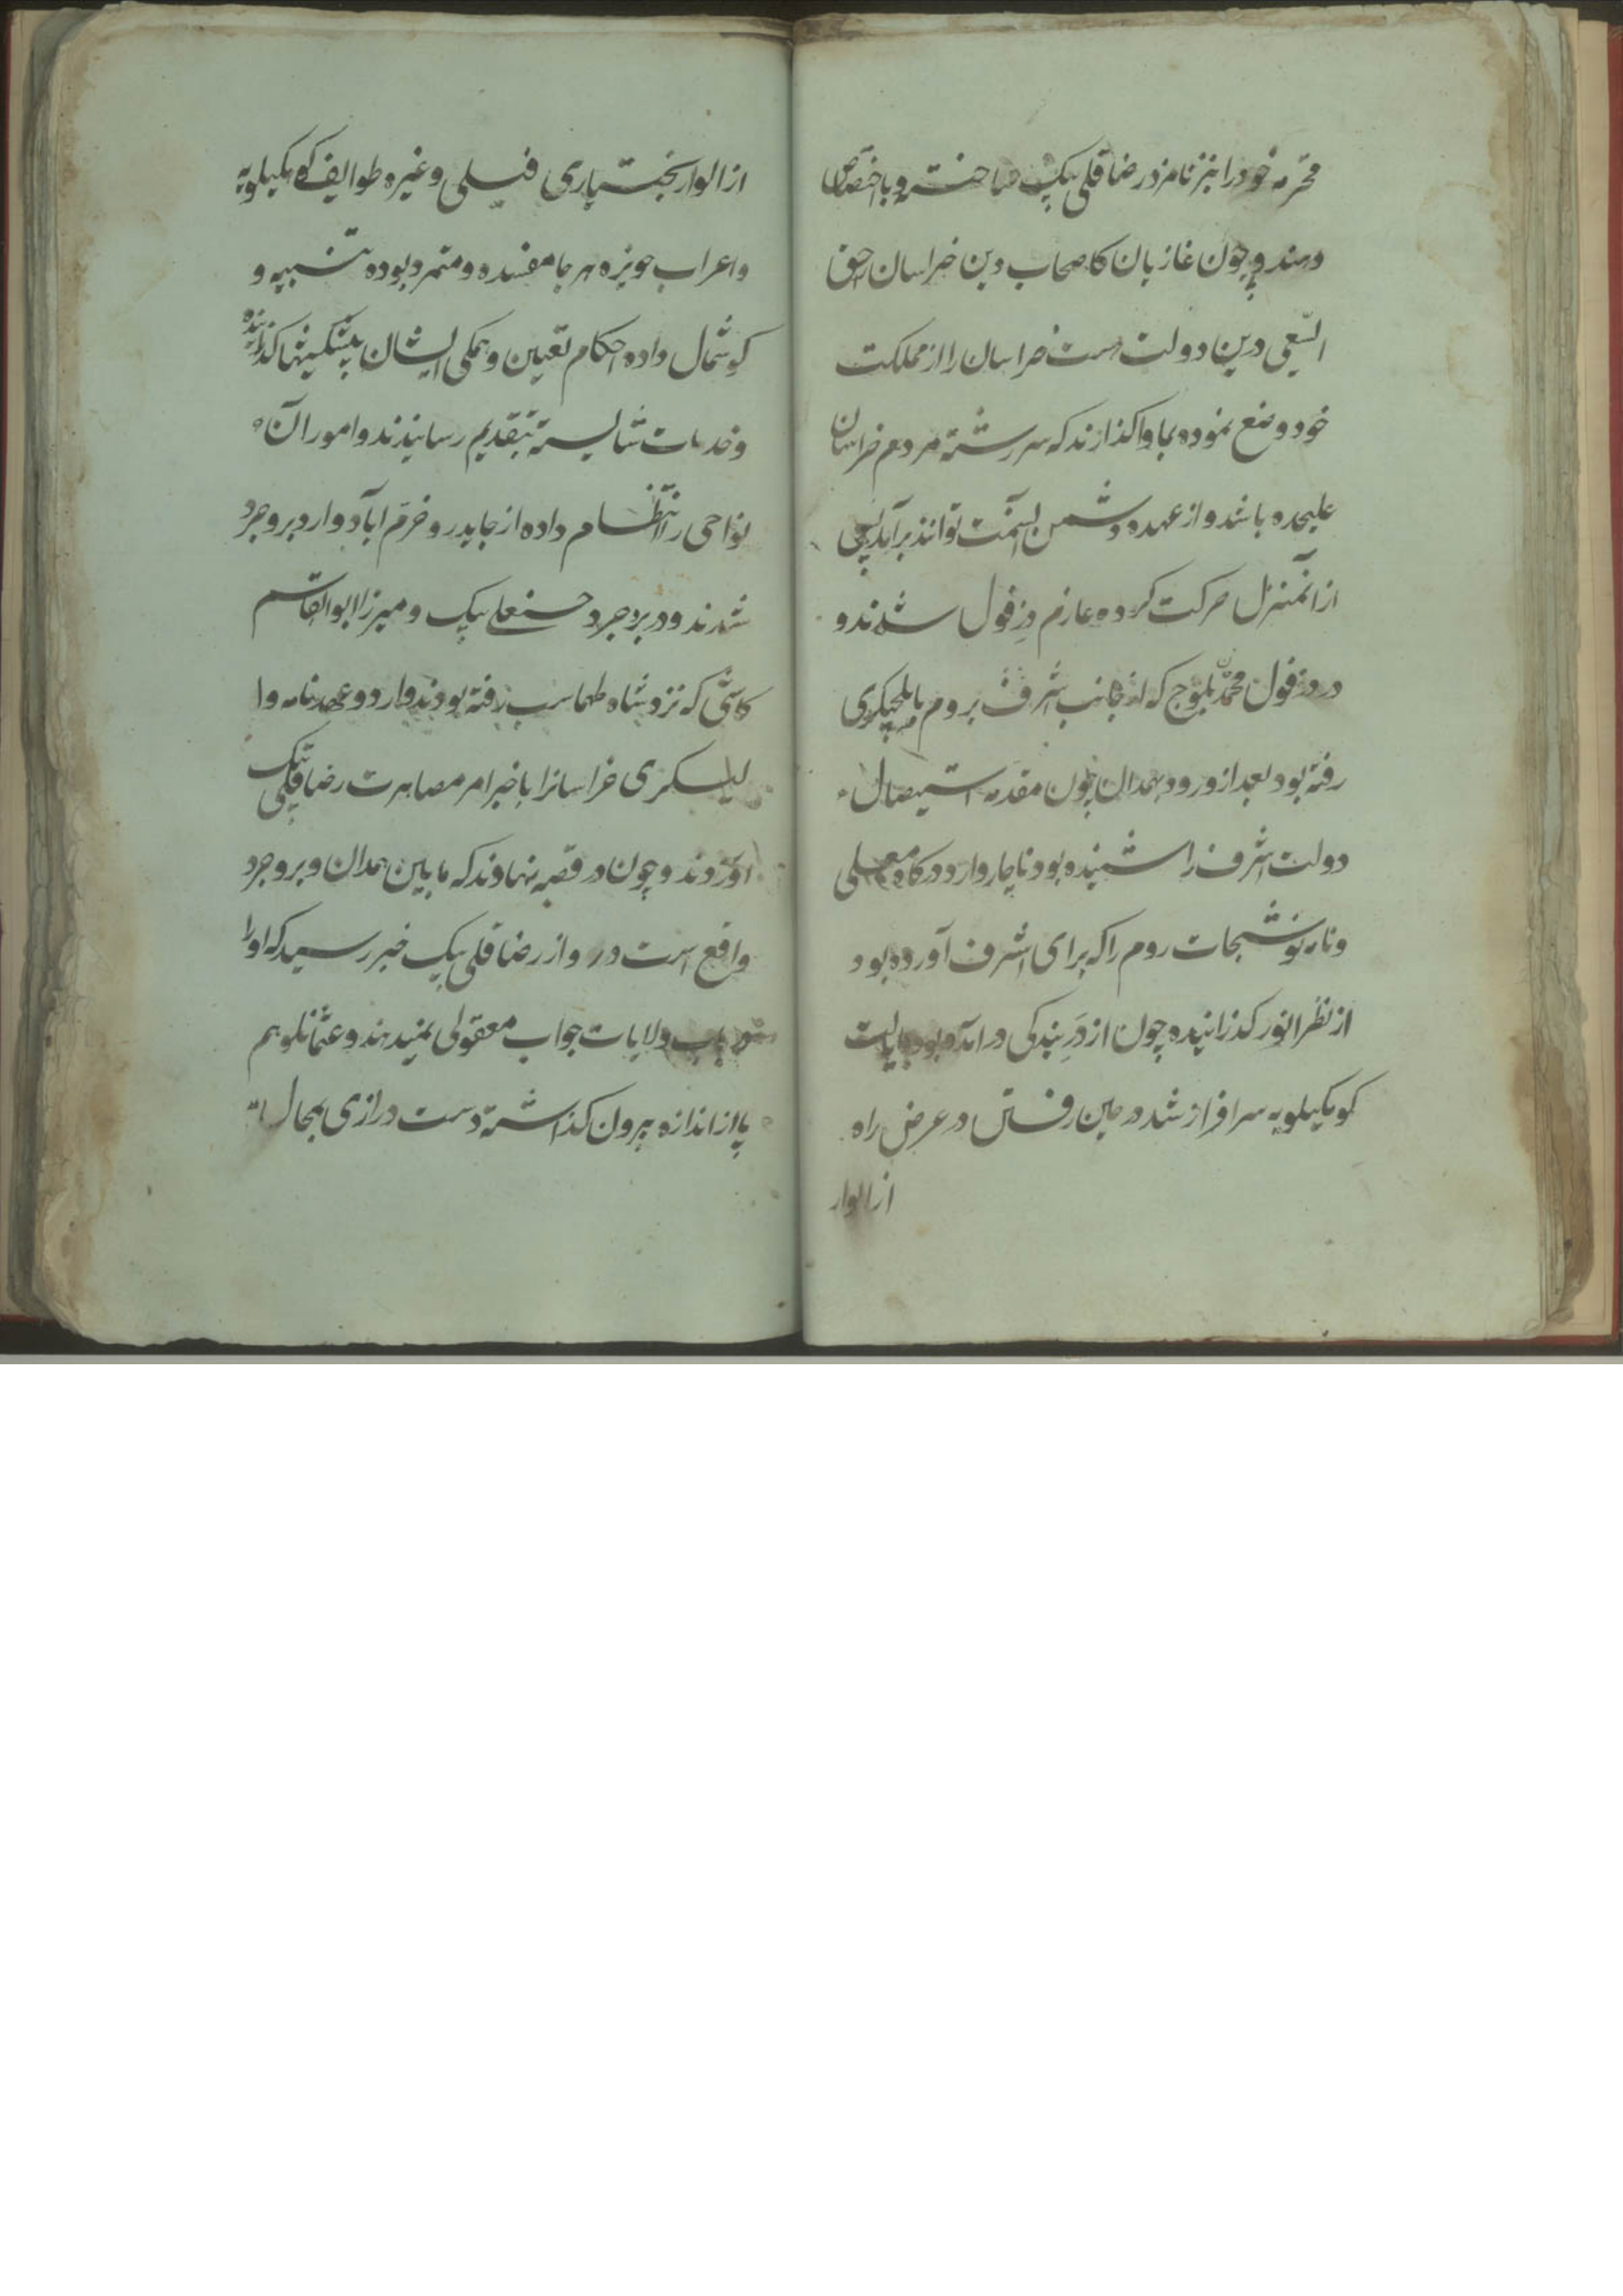 محترمه خود را نیز نامزد رضا قلی بیک ساخته و باختصاص
دهند و چون غازیان کاصحاب دین خراسان را حق
السّعی درین دولت هست خراسان را از مملکت
خود وضع نموده بما واکذارند که سررشتهٔ مردم خراسان
علیحده باشد و از عهده دشمن آنسمت توانند برآمد پس
از آنمنزل حرکت کرده عازم دزفول شدند و
در دزفول محمد بلوج که از جانب اشرف بروم بایلچیکری
رفته بود بعد از ورود بهمدان چون مقدمه استیصال
دولت اشرف را شنیده بود ناچار وارد درکاه معلی
و نامه نوشتجات روم را که برای اشرف آورده بود
از نظر انور کذرانیده چون از در بندکی در آمده بود بایالت
کوهکیلویه سرافراز شد در حین رفتن در عرض راه
از الوار
از الوار بختیاری فیلی و غیره طوایف کوهکیلویه
و اعراب حویزه هر جا مفسده و متمرد بوده تنبیه و
کوشمال داده احکام تعیین و همکی ایشان پیشکشیها کذرانیده
و خدمات شایسته بتقدیم رسانیدند و امور آن
نواحی را انتظام داده از جایدر و خرّم آباد وارد بروجرد
شدند و در بروجرد حسنعلی بیک و میرزا ابوالقاسم
کاشی که نزد شاه طهماسب رفته بودند وارد و عهدنامه وا
لیسکری خراسانرا با خبر امر مصاهرت رضا قلی بیک
آوردند و چون در قصبه نهاوند که مابین همدان و بروجرد
واقع است در و از رضا قلی بیک خبر رسید که او را
در باب ولایات جواب معقولی نمیدهند و عثمانلو هم
پا از اندازه بیرون کذاشته دست درازی بمحال